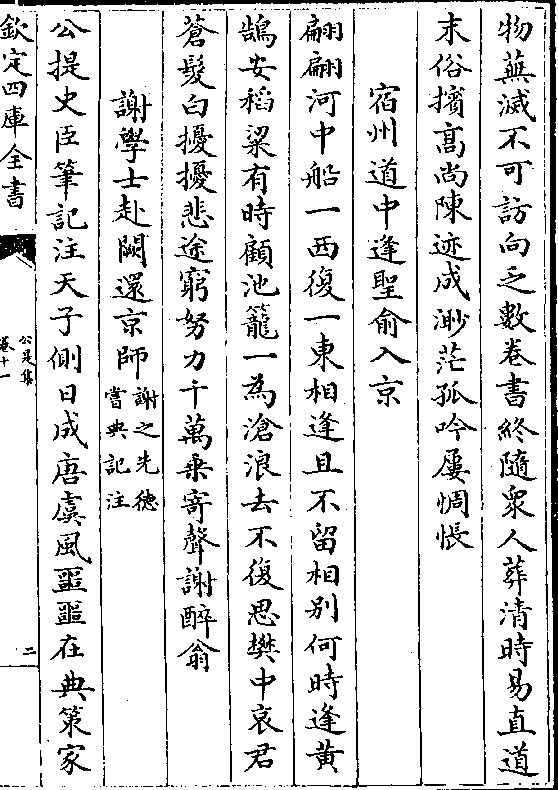 物蕪滅不可訪向乏數卷書終隨衆人葬清時易直道
末俗擯髙尚陳迹成渺茫孤吟屢惆悵
宿州道中逢聖俞入京
翩翩河中船一西復一東相逢且不留相別何時逢黄
鵠安稻粱有時顧池籠一為滄浪去不復思樊中哀君
蒼髮白擾擾悲途窮努力千萬乗寄聲謝醉翁
謝學士赴闕還京師謝之先德嘗典記注
公提史臣筆記注天子側日成唐虞風噩噩在典策家
欽定四庫全書
公是集
卷十一
二